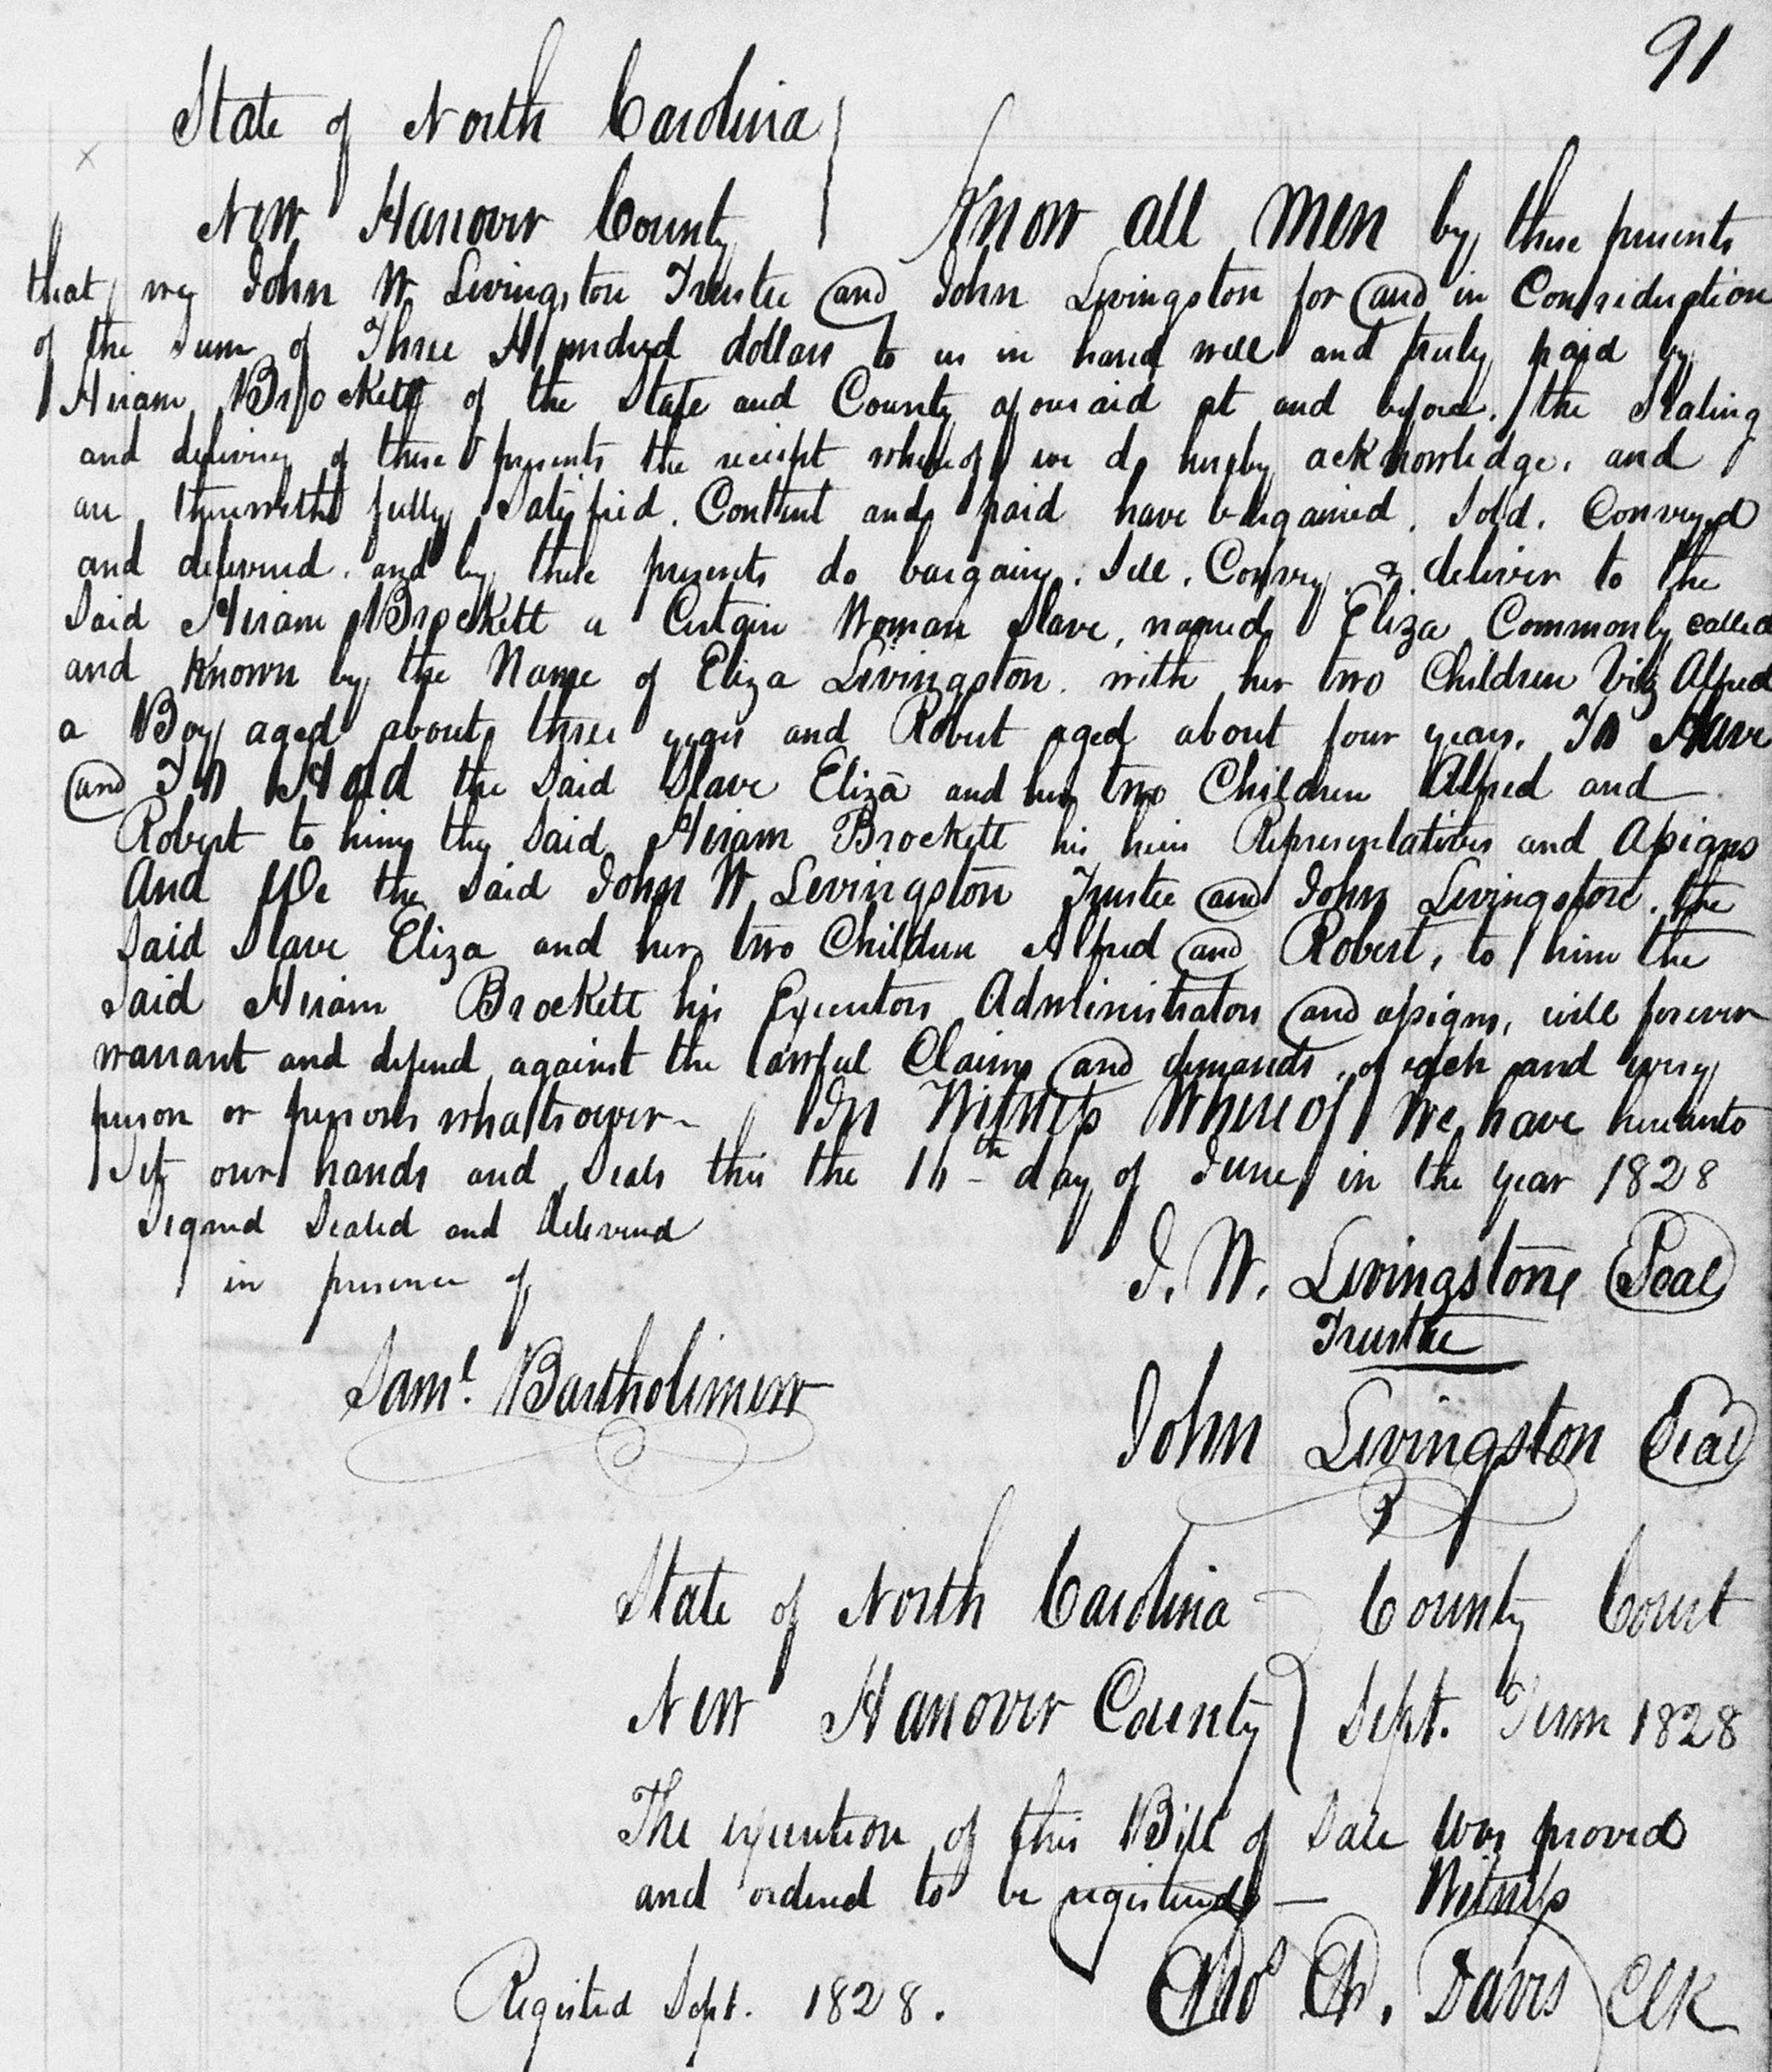 91
State of North Carolina
New Hanover County Know all men by these presents
that we John W. Livingston Trustee and John Livingston for and in Consideration
of the Sum of Three Hundred dollars to us in hand well and truly paid by
Hiram Brockett of the State and County aforesaid at and before the Sealing
and delivery of these presents the receipt whereof we do hereby acknowledge. and
are therewith fully Satisfied. Content and paid have bargained. Sold. Conveyed
and delivered. and by these presents do bargain. Sell. Convey. & deliver to the
Said Hiram Brockett a Certain Woman Slave, named Eliza Commonly called
and Known by the Name of Eliza Livingston. with her two Children Viz Alfred
a Boy aged about three years and Robert aged about four years. To Have
and To Hold the Said Slave Eliza and her two Children Alfred and
Robert to him the Said Hiram Brockett his heirs Representatives and Assigns
And We the Said John W. Livingston Trustee and John Livingston. the
Said Slave Eliza and her two Children Alfred and Robert, to him the
Said Hiram Brockett his Executors Administrators and assigns, will forever
warrant and defend against the lawful Claims and demands, of each and every
person or persons whatsoever - In Witness Whereof We have hereunto
Set our hands and Seals this the 16th day of June in the year 1828
Signed Sealed and Delivered
in presence of
J. W. Livingstone Seal
Trustee
Saml. Bartholimew
John Livingston Seal
State of North Carolina County Court
New Hanover County Sept. Term 1828
The execution of this Bill of Sale was proved
and ordered to be registered — Witness
Registed Sept. 1828. Davis Clk